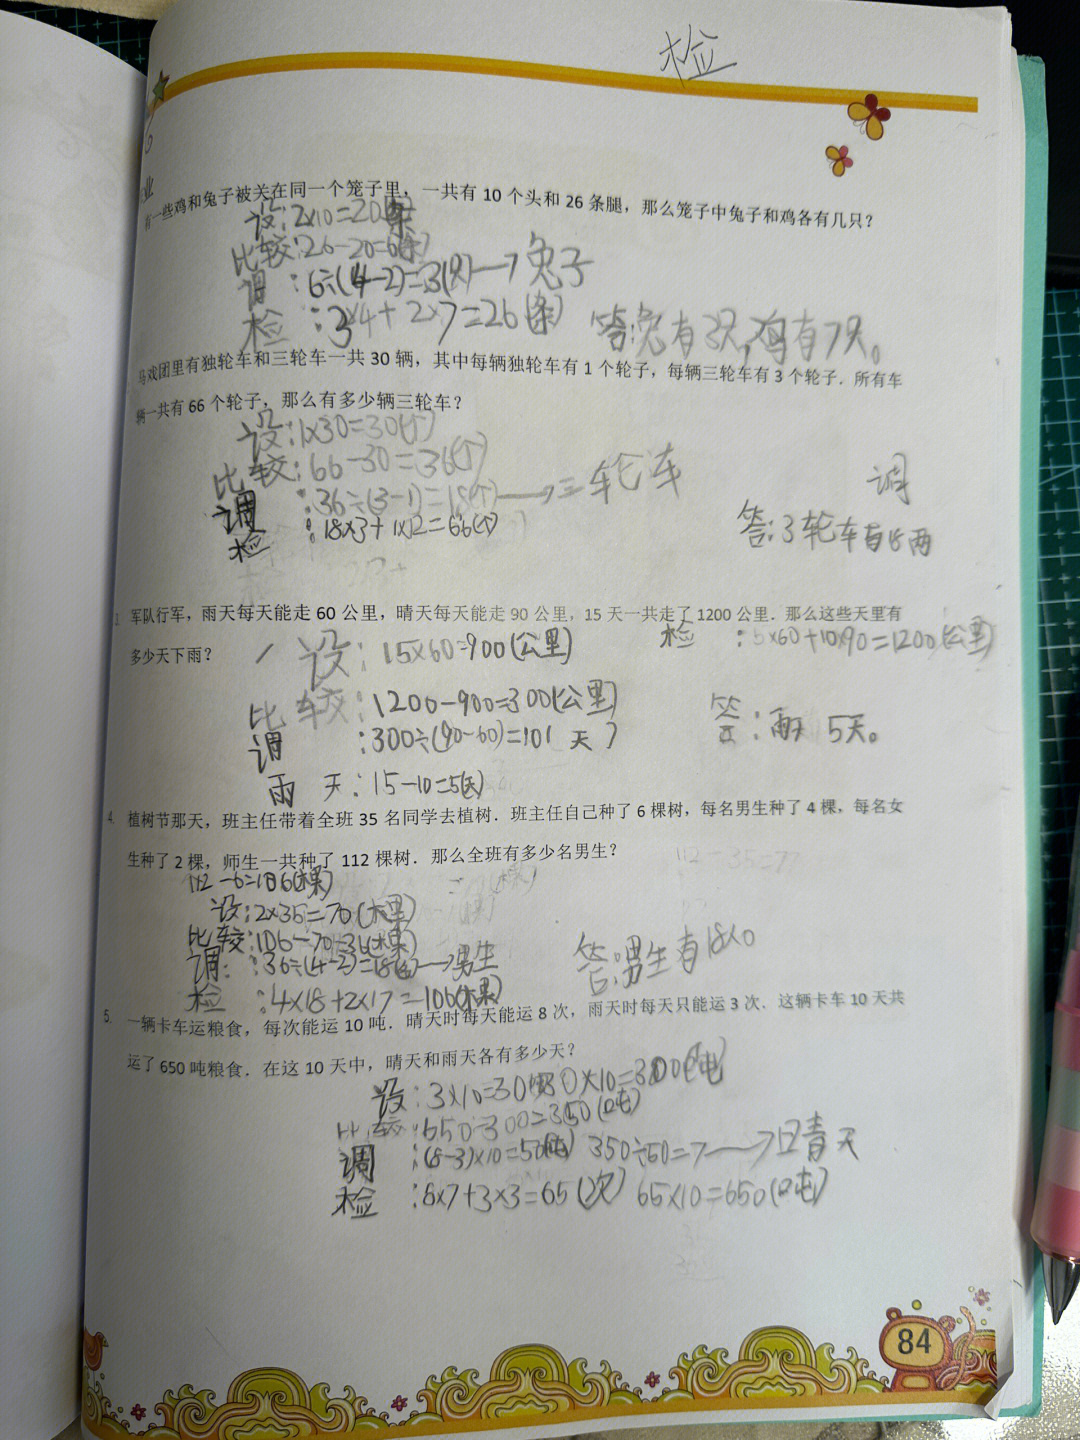 检
业
有一些鸡和兔子被关在同一个笼子里，一共有 10 个头和 26 条腿，那么笼子中兔子和鸡各有几只？
设:2×10=20(条)
比较:26-20=6(条)
调:6÷(4-2)=3(只)→兔子
检:3×4+2×7=26(条) 答:兔有3只,鸡有7只。
马戏团里有独轮车和三轮车一共 30 辆，其中每辆独轮车有 1 个轮子，每辆三轮车有 3 个轮子．所有车
辆一共有 66 个轮子，那么有多少辆三轮车？
设:1×30=30(个)
比较:66-30=36(个)
调:36÷(3-1)=18(个)→三轮车 调
检:18×3+1×12=66(个) 答:3轮车有18两
3. 军队行军，雨天每天能走 60 公里，晴天每天能走 90 公里，15 天一共走了 1200 公里．那么这些天里有
多少天下雨？ 检:5×60+10×90=1200(公里)
设:15×60=900(公里)
比较:1200-900=300(公里) 答:雨天 5天。
调:300÷(90-60)=10(天)
雨天:15-10=5(天)
4. 植树节那天，班主任带着全班 35 名同学去植树．班主任自己种了 6 棵树，每名男生种了 4 棵，每名女
生种了 2 棵，师生一共种了 112 棵树．那么全班有多少名男生？
112-6=106(棵)
设:2×35=70(棵)
比较:106-70=36(棵)
调:36÷(4-2)=18(名)→男生 答:男生有18人。
检:4×18+2×17=106(棵)
5. 一辆卡车运粮食，每次能运 10 吨．晴天时每天能运 8 次，雨天时每天只能运 3 次．这辆卡车 10 天共
运了 650 吨粮食．在这 10 天中，晴天和雨天各有多少天？
设:3×10=30 30×10=300(吨)
比较:650-300=350(吨)
调:(8-3)×10=50(吨) 350÷50=7→晴天
检:8×7+3×3=65(次) 65×10=650(吨)
84